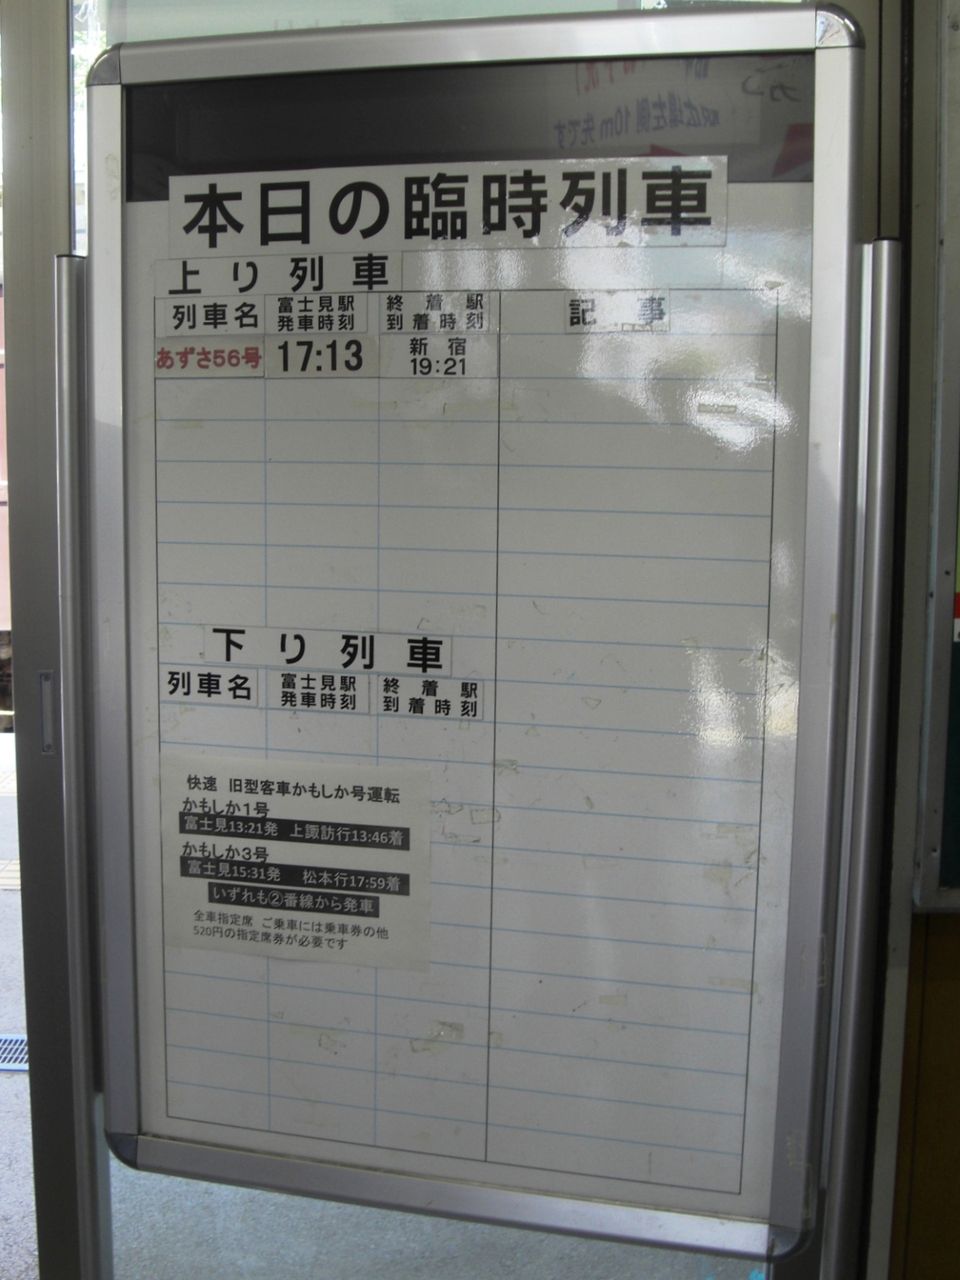 駅広場左側10m先です
本日の臨時列車
上り列車
列車名 富士見駅発車時刻 終着駅到着時刻 記事
あずさ56号 17:13 新宿 19:21
下り列車
列車名 富士見駅発車時刻 終着駅到着時刻
快速 旧型客車かもしか号運転
かもしか1号
富士見13:21発 上諏訪行13:46着
かもしか3号
富士見15:31発 松本行17:59着
いずれも②番線から発車
全車指定席 ご乗車には乗車券の他
520円の指定席券が必要です